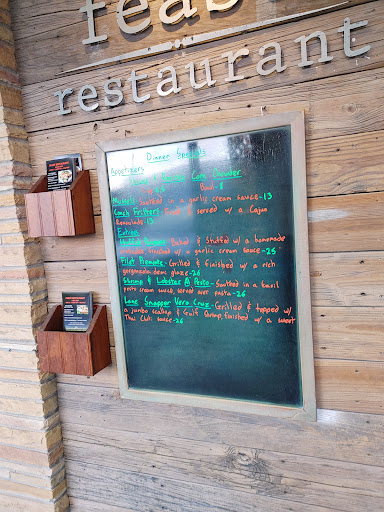 feas
restaurant
Dinner Specials
Appetizers
Corn Chowder
Bowl-8
Mussels-Sautéed in a garlic cream sauce-13
Conch Fritters- Fried & served w/ a Cajun
Remoulade-13
Entrées
Baked & Stuffed w/ a homemade
finished w/ a garlic cream sauce-25
Filet Piemonte-Grilled & finished w/ a rich
gorgonzola demi glaze-26
Shrimp & Lobster Al Pesto-Sautéed in a basil
pesto cream sauce, served over pasta-26
Lane Snapper Vera Cruz-Grilled & topped w/
a jumbo scallop & Gulf Shrimp, finished w/ a sweet
Thai Chili sauce-26